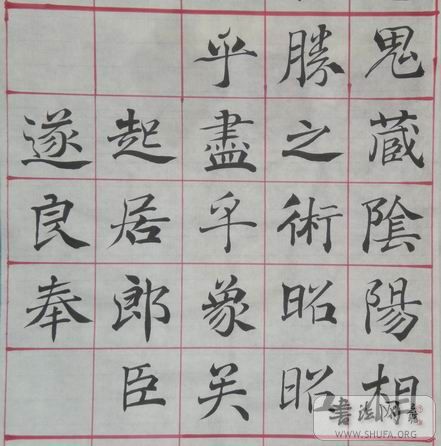 鬼藏陰陽相
勝之術昭昭
乎盡乎象矣
起居郎臣
遂良奉
書法网
WWW.SHUFA.ORG